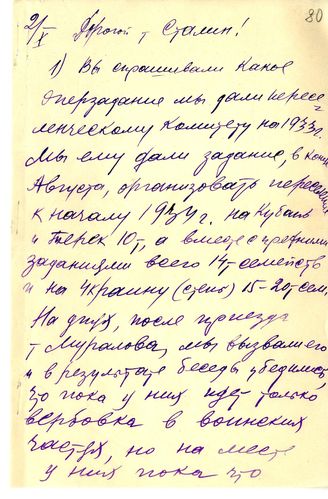 80
2/X Дорогой т Сталин!
1) Вы спрашивали какое
оперзадание мы дали пересе-
ленческому комитету на 1933 г.
Мы ему дали задание, в конце
Августа, организовать переселение
к началу 1934 г. на Кубань
и Терек 10 т, а вместе с прежними
заданиями всего 14 т семейств
и на Украину (степь) 15-20 т сем.
На днях, после приезда
т Муралова, мы вызвали его
и в результате беседы убедились,
что пока у них идет только
вербовка в воинских
частях, но на месте
у них пока что